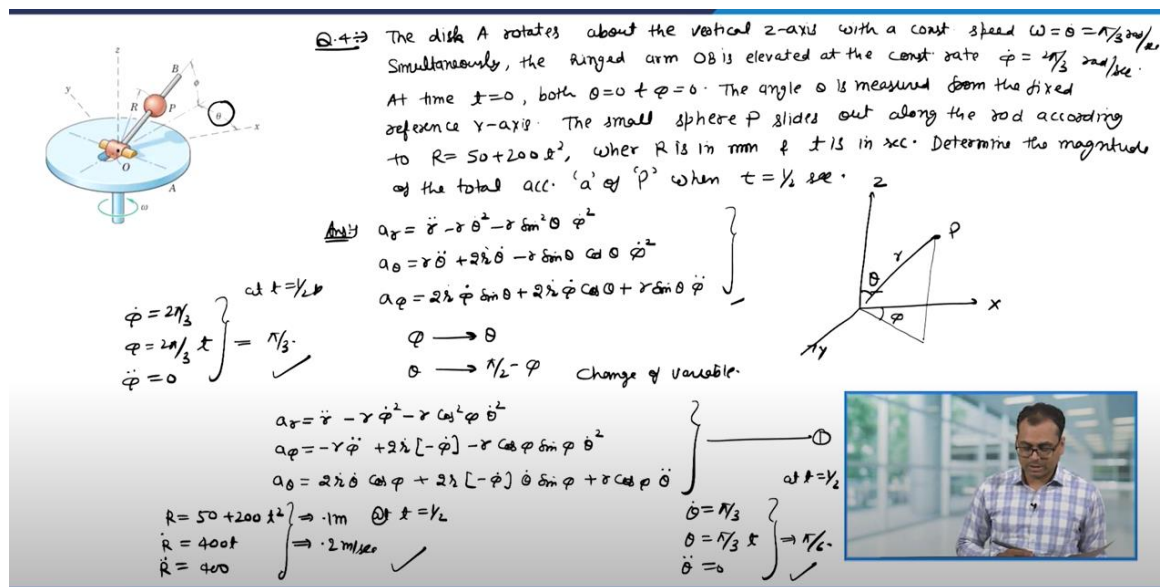 Q.4:→ The disk A rotates about the vertical z-axis with a const speed ω = θ̇ = π/3 rad/se
Simultaneously, the hinged arm OB is elevated at the const rate φ̇ = 2π/3 rad/sec.
At time t=0, both θ=0 + φ=0. The angle θ is measured from the fixed
reference x-axis. The small sphere P slides out along the rod according
to R = 50+200t², wher R is in mm & t is in sec. Determine the magnitude
of the total acc. 'a' of 'P' when t = 1/2 sec.
z
B
R
P
φ
θ
y
x
O
A
ω
Ans:
aᵣ = r̈ - rθ̇² - r sin²θ φ̇²
a_θ = rθ̈ + 2ṙθ̇ - r sinθ cosθ φ̇²
a_φ = 2ṙφ̇ sinθ + 2ṙφ̇ cosθ + r sinθ φ̈
Z
P
r
θ
φ
X
Y
at t=1/2
φ̇ = 2π/3
φ = 2π/3 t
φ̈ = 0
= π/3. ✓
φ → θ
θ → π/2 - φ
Change of variable.
aᵣ = r̈ - rφ̇² - r cos²φ θ̇²
a_φ = -rφ̈ + 2ṙ[-φ̇] - r cosφ sinφ θ̇²
a_θ = 2ṙθ̇ cosφ + 2r[-φ̇]θ̇ sinφ + r cosφ θ̈
①
R = 50+200t² ⇒ .1m @ t=1/2
Ṙ = 400t ⇒ .2m/sec ✓
R̈ = 400
at t=1/2
θ̇ = π/3
θ = π/3 t ⇒ π/6. ✓
θ̈ = 0